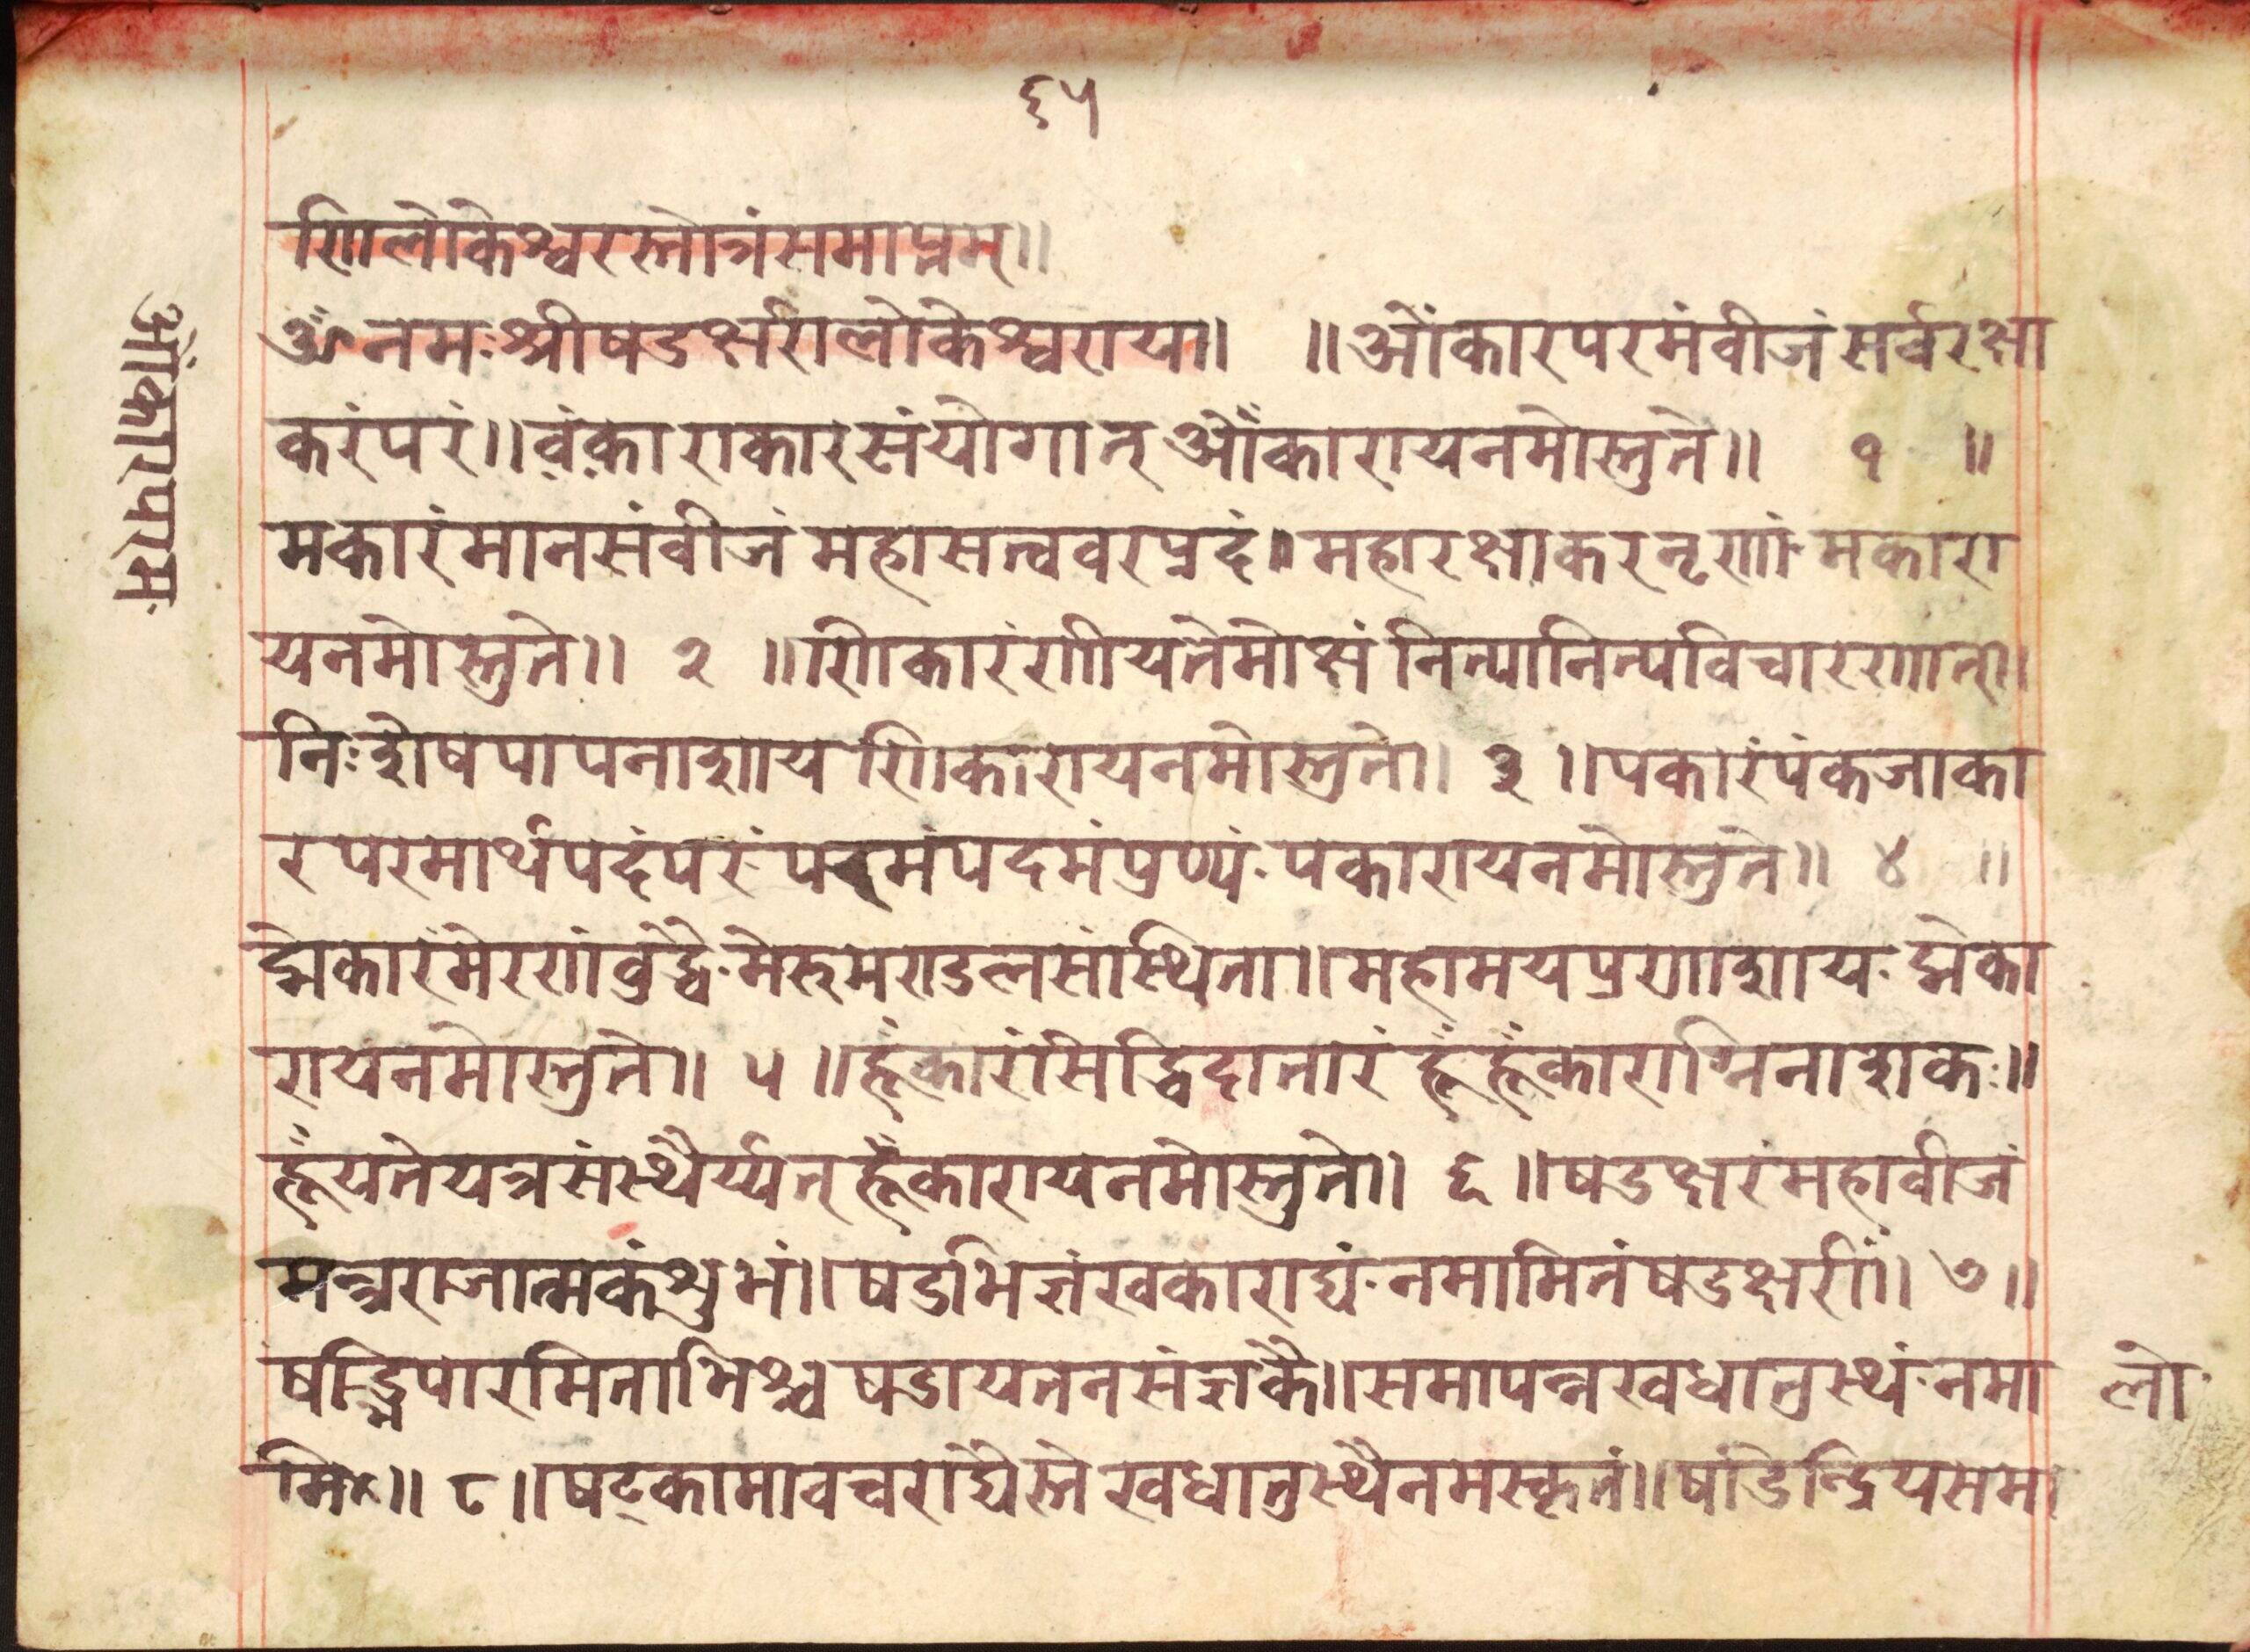 ६५
णिलोकेश्वरस्तोत्रंसमाप्तम्॥
ॐनमःश्रीषडक्षरीलोकेश्वराय॥ ॥ओंकारपरमंवीजंसर्वरक्षा
करंपरं॥वंकाराकारसंयोगात्ओंकारायनमोस्तुते॥ १ ॥
मकारंमानसंवीजंमहासत्ववरप्रदं॥महारक्षाकरनृणांमकारा
यनमोस्तुते॥ २ ॥णिकारंणीयतेमोक्षंनित्यानित्यविचारणात्॥
निःशेषपापनाशायणिकारायनमोस्तुते॥ ३ ॥पकारंपंकजाका
रपरमार्थपदंपरंपरमंपदमंप्रण्यंपकारायनमोस्तुते॥ ४ ॥
द्मेकारंमेरणांवुद्धैमेरुमण्डलसंस्थिता॥महामयप्रणाशायद्मेका
रायनमोस्तुते॥ ५ ॥हूंकारंसिद्धिदातारंहूंहूंकाराग्निनाशकः॥
हूंयतेयत्रसंस्थैर्य्यत्हूंकारायनमोस्तुते॥ ६ ॥षडक्षरंमहावीजं
मन्त्रराजात्मकंशुभं॥षडभिज्ञंखकाराद्यंनमामितंषडक्षरीं॥ ७॥
षड्भिपारमिताभिश्चषडायतनसंज्ञकै॥समापन्नखधातुस्थंनमा
मि॥ ८॥षट्कामावचराद्यैस्तेखधातुस्थैनमस्कृतं॥षडिन्द्रियसमा
लो
ओंकारपरमं